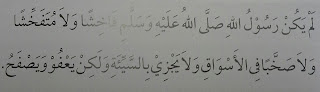 لَمْ يَكُنْ رَسُوْلُ اللهِ صَلَّى اللهُ عَلَيْهِ وَسَلَّمَ فَاحِشًا وَلاَ مُتَفَحِّشًا
وَلاَ صَخَّبًا فِي الأَسْوَاقِ وَلاَ يَجْزِيْ بِالسَّيِّئَةِ وَلَكِنْ يَعْفُوْ وَيَصْفَحُ.